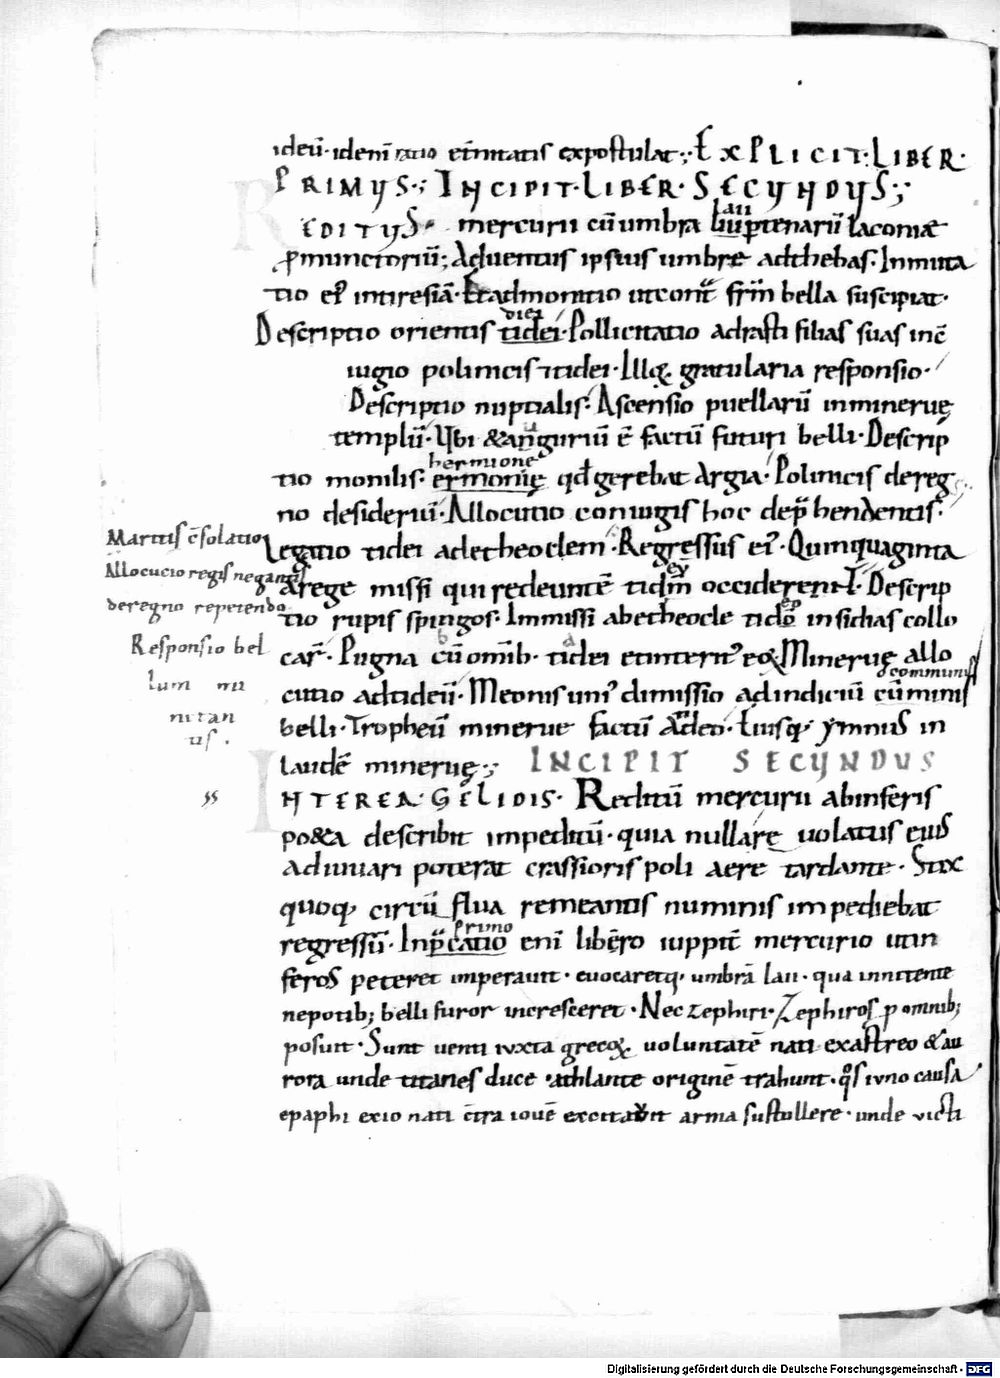 ideū·idem̄ ratio et̄nitatis expostulat·; EXPLICIT·LIBER·
PRIMUS·; INCIPIT·LIBER·SECUNDUS·;
REDITUS· mercurii cū umbra
laii
ꝑtenariū laconiæ
ꝓmunctoriū; Aduentus ipsius umbre adthebas· Inmuta
tio ei᷒ intiresiā· Et admonitio utcont̄ frīn bella suscipiat·
diei
Descriptio orientis tidei· Pollicitatio adrasti filias suas incō
iugio polinicis ⁊ tidei· Illoꝝ gratularia responsio·
Descriptio nuptialis· Ascensio puellarū inmineruę
templū· Ubi & anguriū ē factū futuri belli· Descrip
hermione
tio monilis· ermonię qđ gerebat Argia· Polinicis dereg
no desideriū· Allocutio coniugis hoc dep̄hendentis·
Legatio tidei adetheoclem· Regressus ei᷒· Quinquaginta
ex
Arege missi qui redeuntē tidēm occiderent· Descrip
ep
tio rupis spingos· Immissi abetheocle tideo insidias collo
car̄· Pugna cū om̄ib· tidei etinterit᷒ eoꝝ Mineruę allo
communis
cutio adtideū· Meonis uni᷒ dimissio adindiciū cū minis
belli· Tropheū minerue factū Eiusq· ymnus in
laudē mineruę·; INCIPIT SECUNDUS
INTEREA· GELIDIS· Reditū mercurii abinferis
po&a describit impeditū· quia nulla re uolatus eius
adiuuari poterat crassioris poli aere tardante· Stix
quoq· circū flua remeantis numinis impediebat
primo
regressū· Inp̄catio enī libero iuppit̄ mercurio utin
feros peteret imperauit· euocaretq· umbrā lau· qua innitente
nepotib; belli furor incresceret· Nec zephiri· Zephiros ꝓ omnib;
posuit· Sunt uenti iuxta grecoꝝ uoluntatē nati exastreo & au
rora unde titanes duce athlante originē trahunt· qo̅s iuno causa
epaphi exio nati cōtra iouē arma sustollere· unde uicti
Martis c̄solatio
Allocucio regis negantis
deregno repetendo
Responsio bel
lum mi
nitan
us·